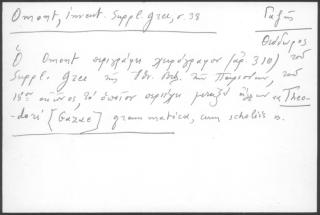 Omont, invent. Suppl. grec, σ. 38
Γαζῆς
Θεόδωρος
Ὁ Omont περιγράφει χειρόγραφον (ἀρ. 310) τοῦ
Suppl. grec τῆς Ἐθν. Βιβ. τῶν Παρισίων, τοῦ
18ου αἰῶνος, τὸ ὁποῖον περιέχει μεταξὺ ἄλλων τὰ Theo-
dori [Gazae] grammatica, cum scholiis